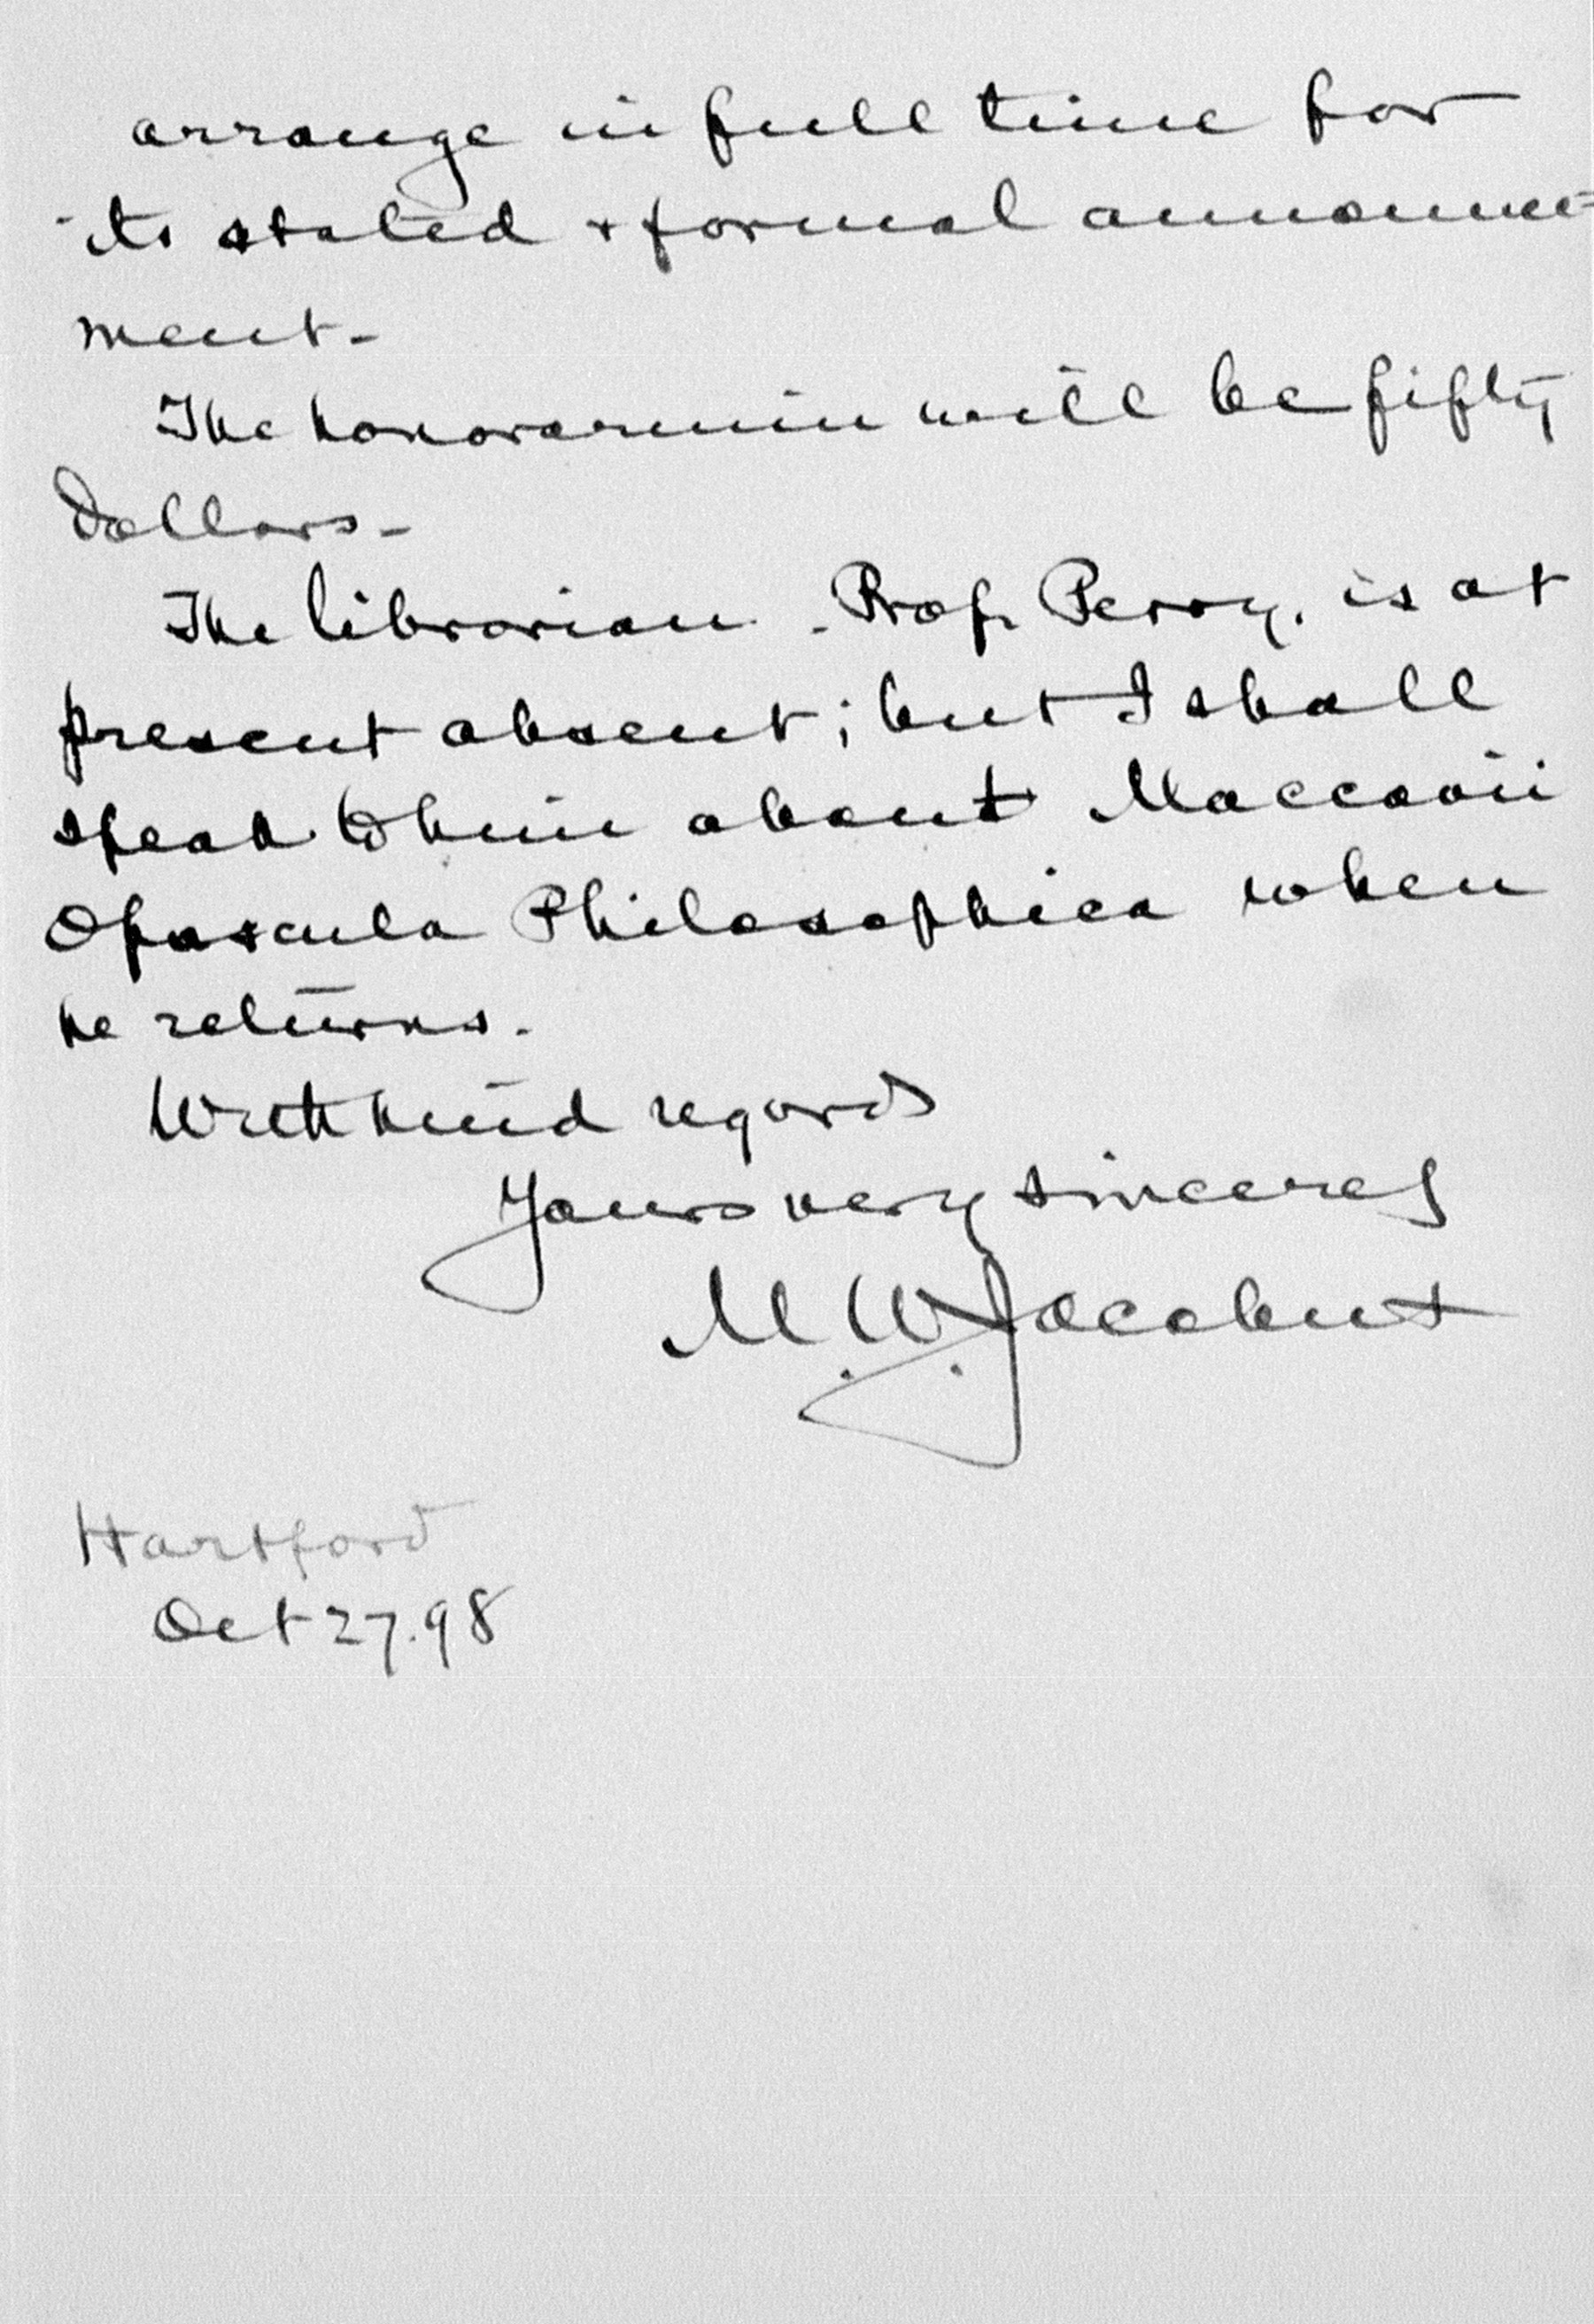 arrange in full time for
its stated + formal announce-
ment-
The honorarium will be fifty
Dollars-
The librarian - Prof. Perry, is at
present absent; but I shall
speak to him about Maccovii
Opuscula Philosophica when
he returns.
With kind regards
Yours very sincerely
M. W. Jacobus
Hartford
Oct 27.98